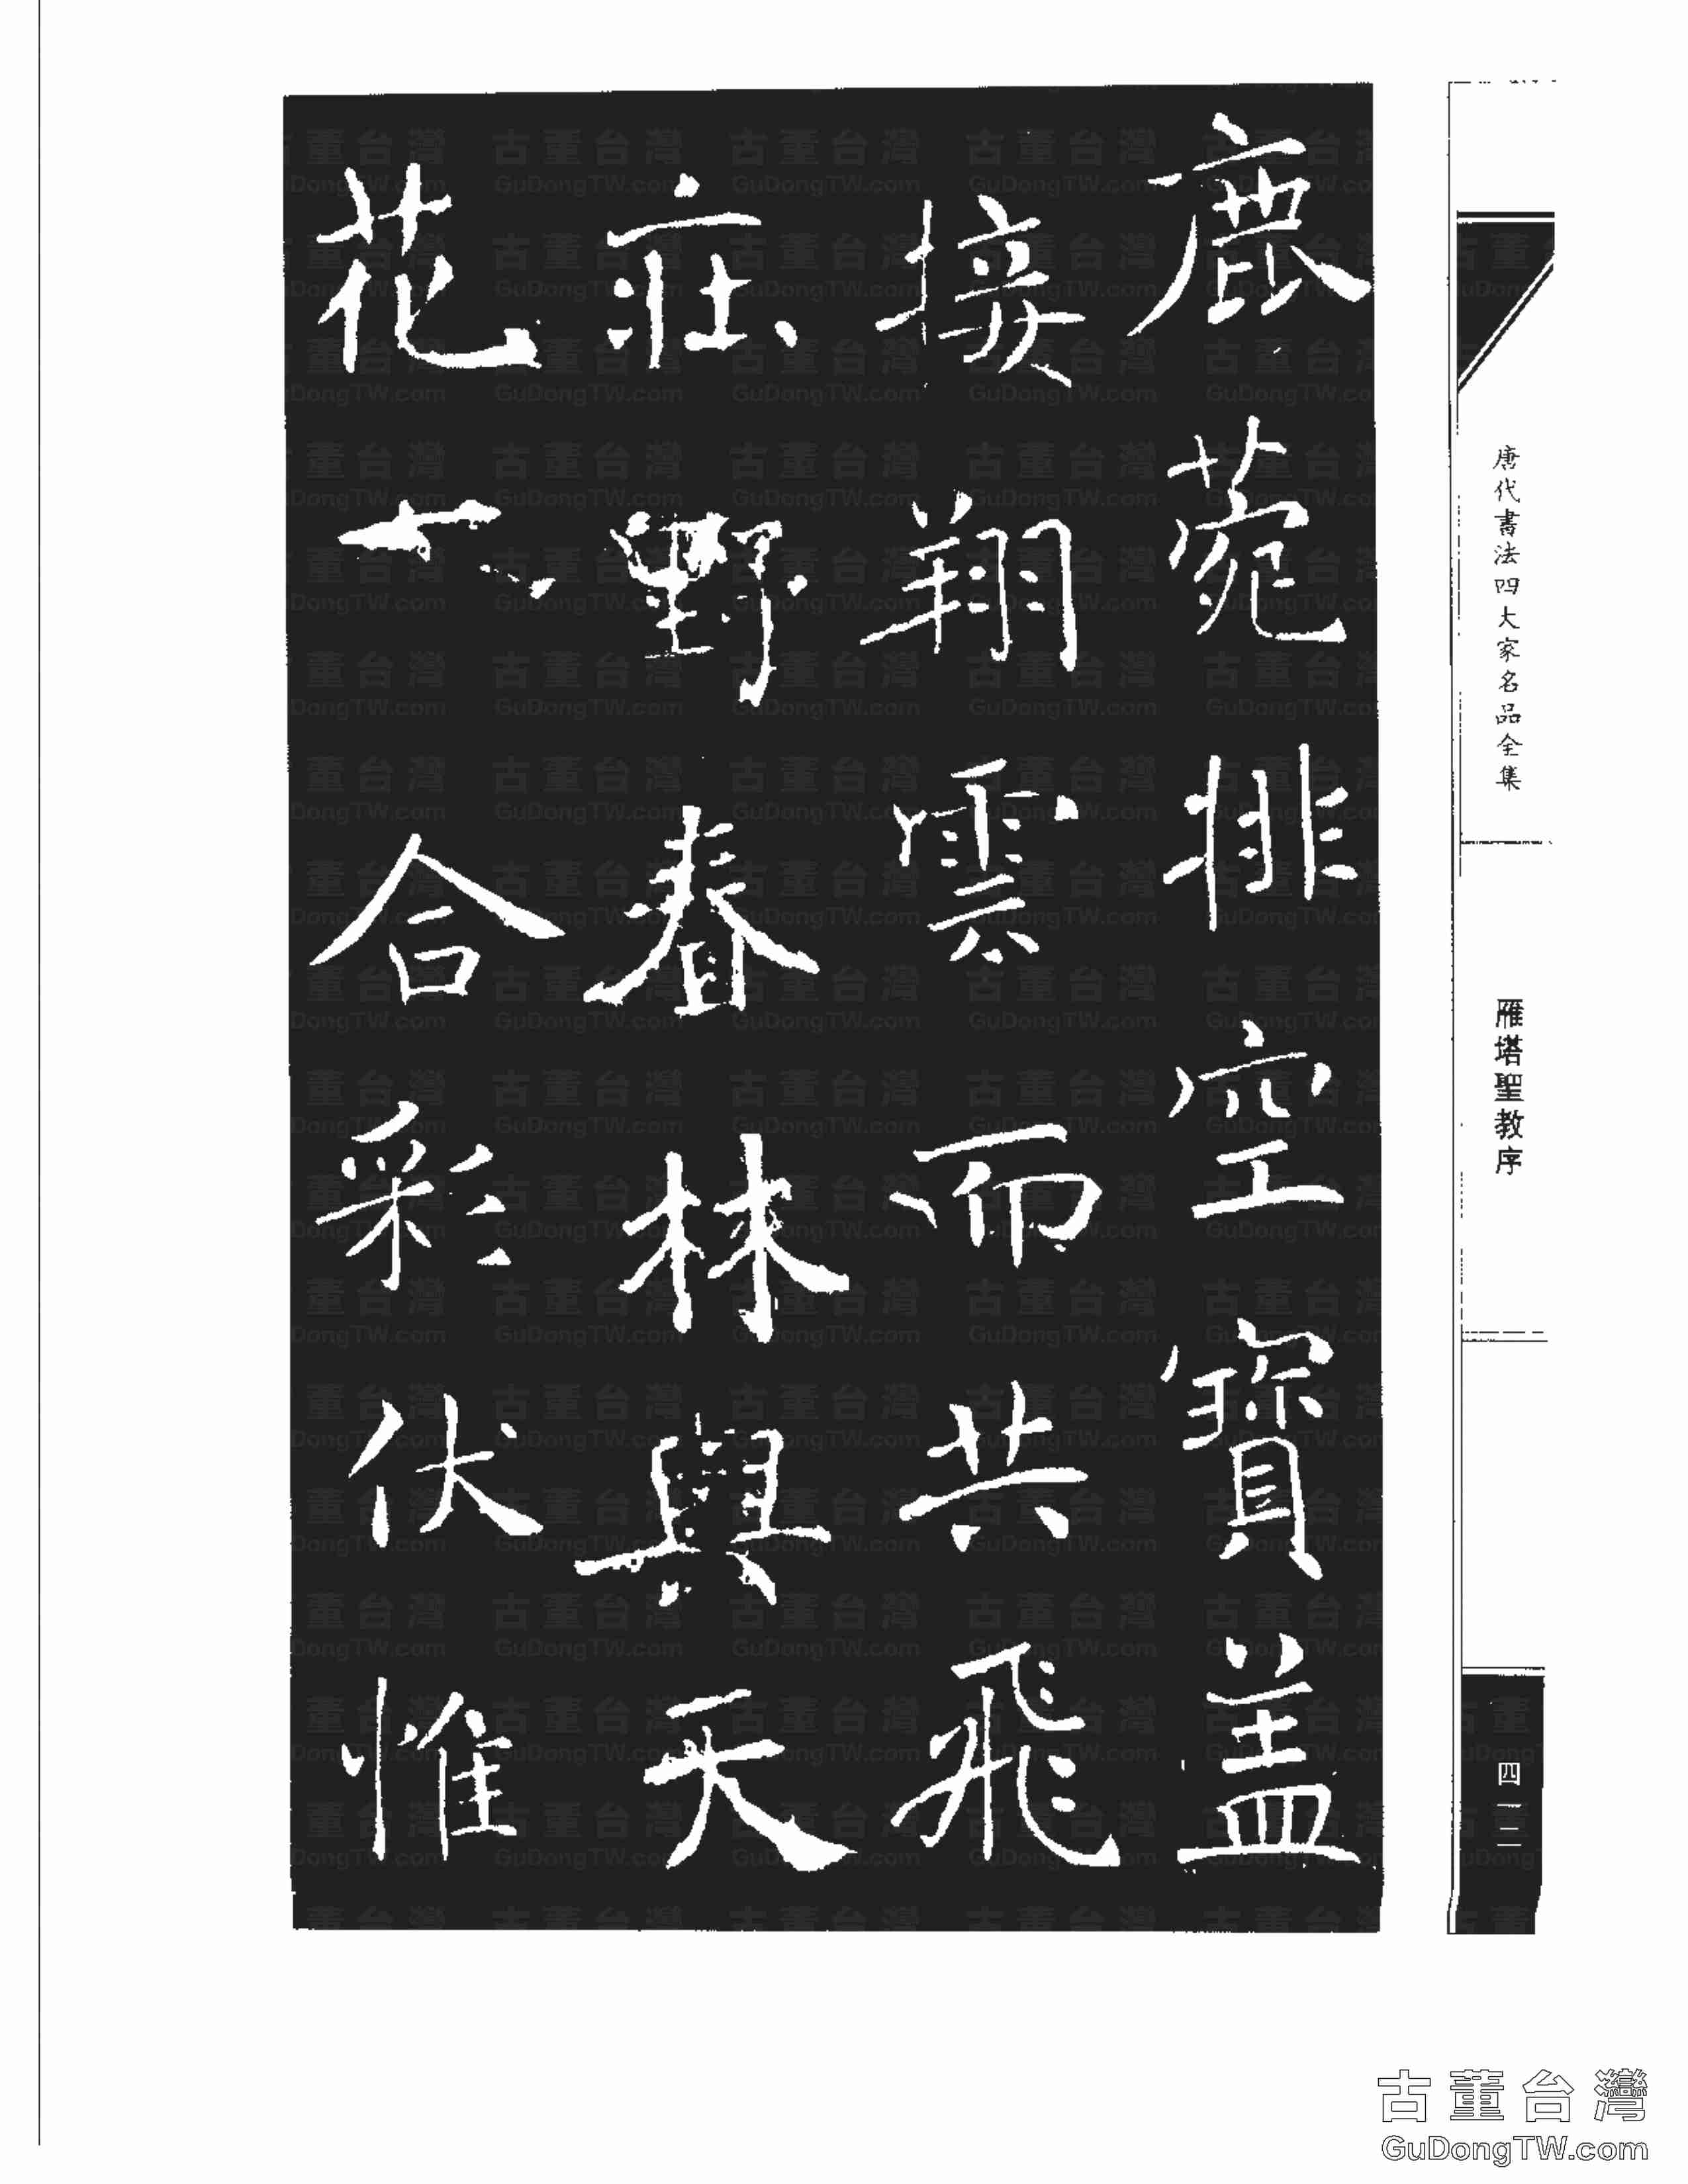 鹿菀排空寶盖
接翔雲而共飛
莊野春林與天
花而合彩伏惟
唐代書法四大家名品全集
雁塔聖教序
四二
古董台灣
GuDongTW.com